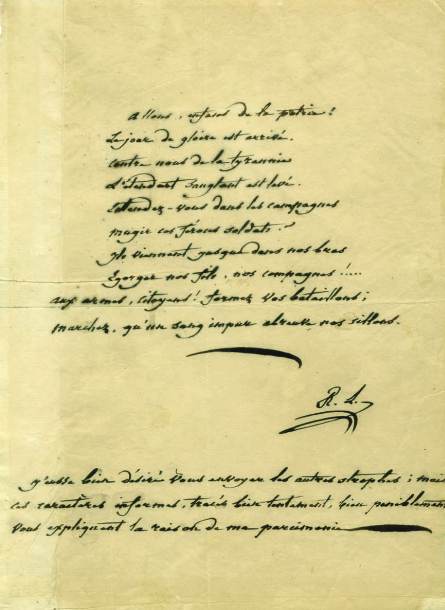 Allons, enfans de la patrie!
Le jour de gloire est arrivé.
Contre nous de la tyrannie
L'étendart sanglant est levé.
Entendez-vous dans les campagnes
mugir ces féroces soldats?
Ils viennent jusque dans nos bras
Egorger nos fils, nos compagnes!....
aux armes, citoyens! formez vos bataillons;
marchez, qu'un sang impur abreuve nos sillons.
R. L.
j'eusse bien désiré vous envoyer les autres strophes; mais
ces caracteres informes, tracés bien lentement, bien peniblement
vous expliquent la raison de ma parcimonie